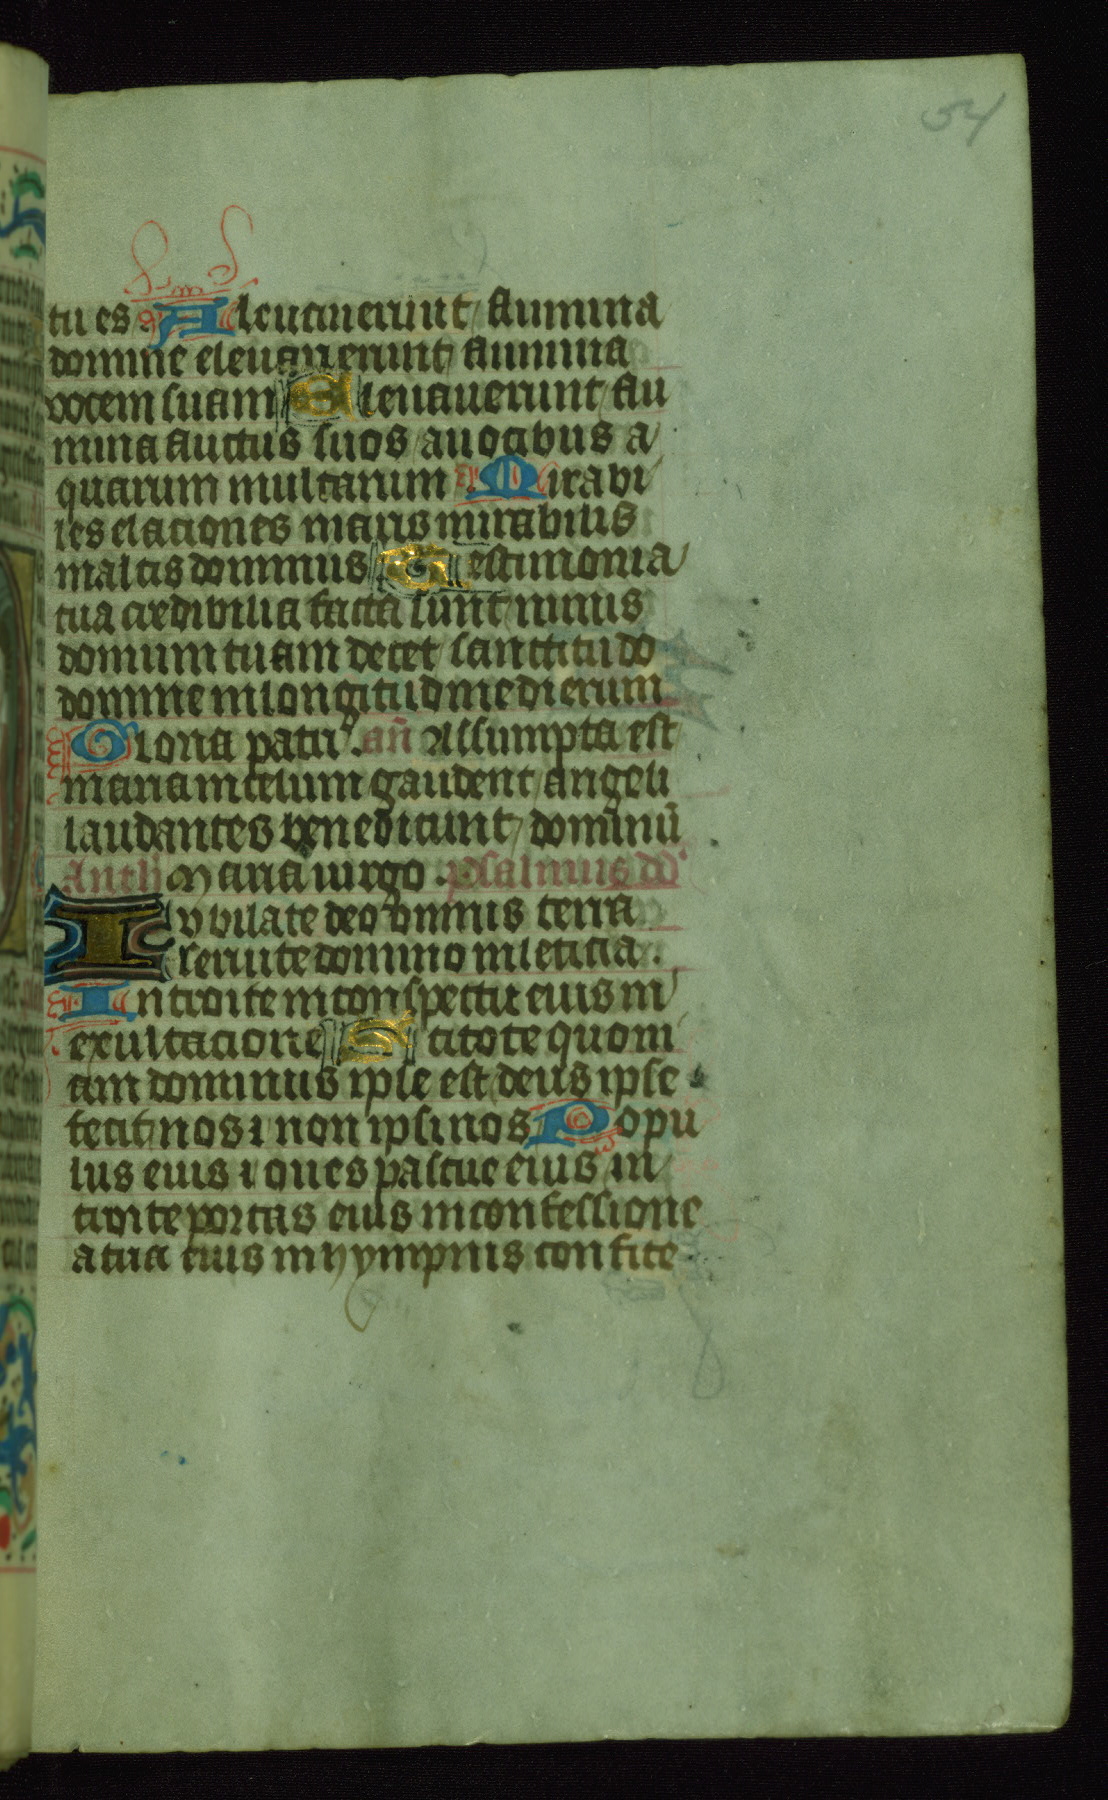 54
tu es Aleuauerunt flumina
domine eleuauerunt flumina
vocem suam Eleuauerunt flu
mina fluctus suos a vocibus a
quarum multarum Mirabi
les elaciones maris mirabilis
in altis dominus Testimonia
tua credibilia facta sunt nimis
domum tuam decet sanctitudo
domine in longitudine dierum
Gloria patri. an̄ Assumpta est
maria in celum gaudent angeli
laudantes benedicunt dominū
Anth Maria uirgo. psalmus dd
Iubilate deo omnis terra
seruite domino in leticia.
Introite in conspectu eius in
exultacione Scitote quoni
am dominus ipse est deus ipse
fecit nos ⁊ non ipsi nos Popu
lus eius ⁊ oues pascue eius in
troite portas eius in confessione
atria eius in hympnis confite